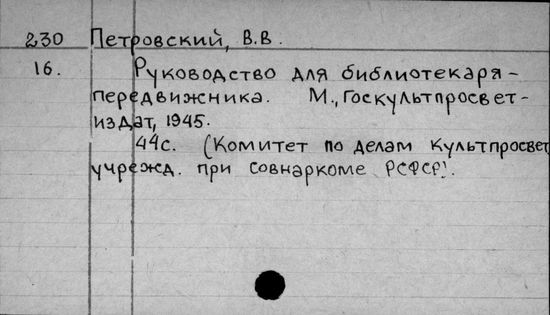 230 Петровский, В.В.
16. Руководство для библиотекаря-
передвижника. М., Госкультпросвет-
издат, 1945.
44с. (Комитет по делам Культпросвет
учрежд. при Совнаркоме РСФСР).